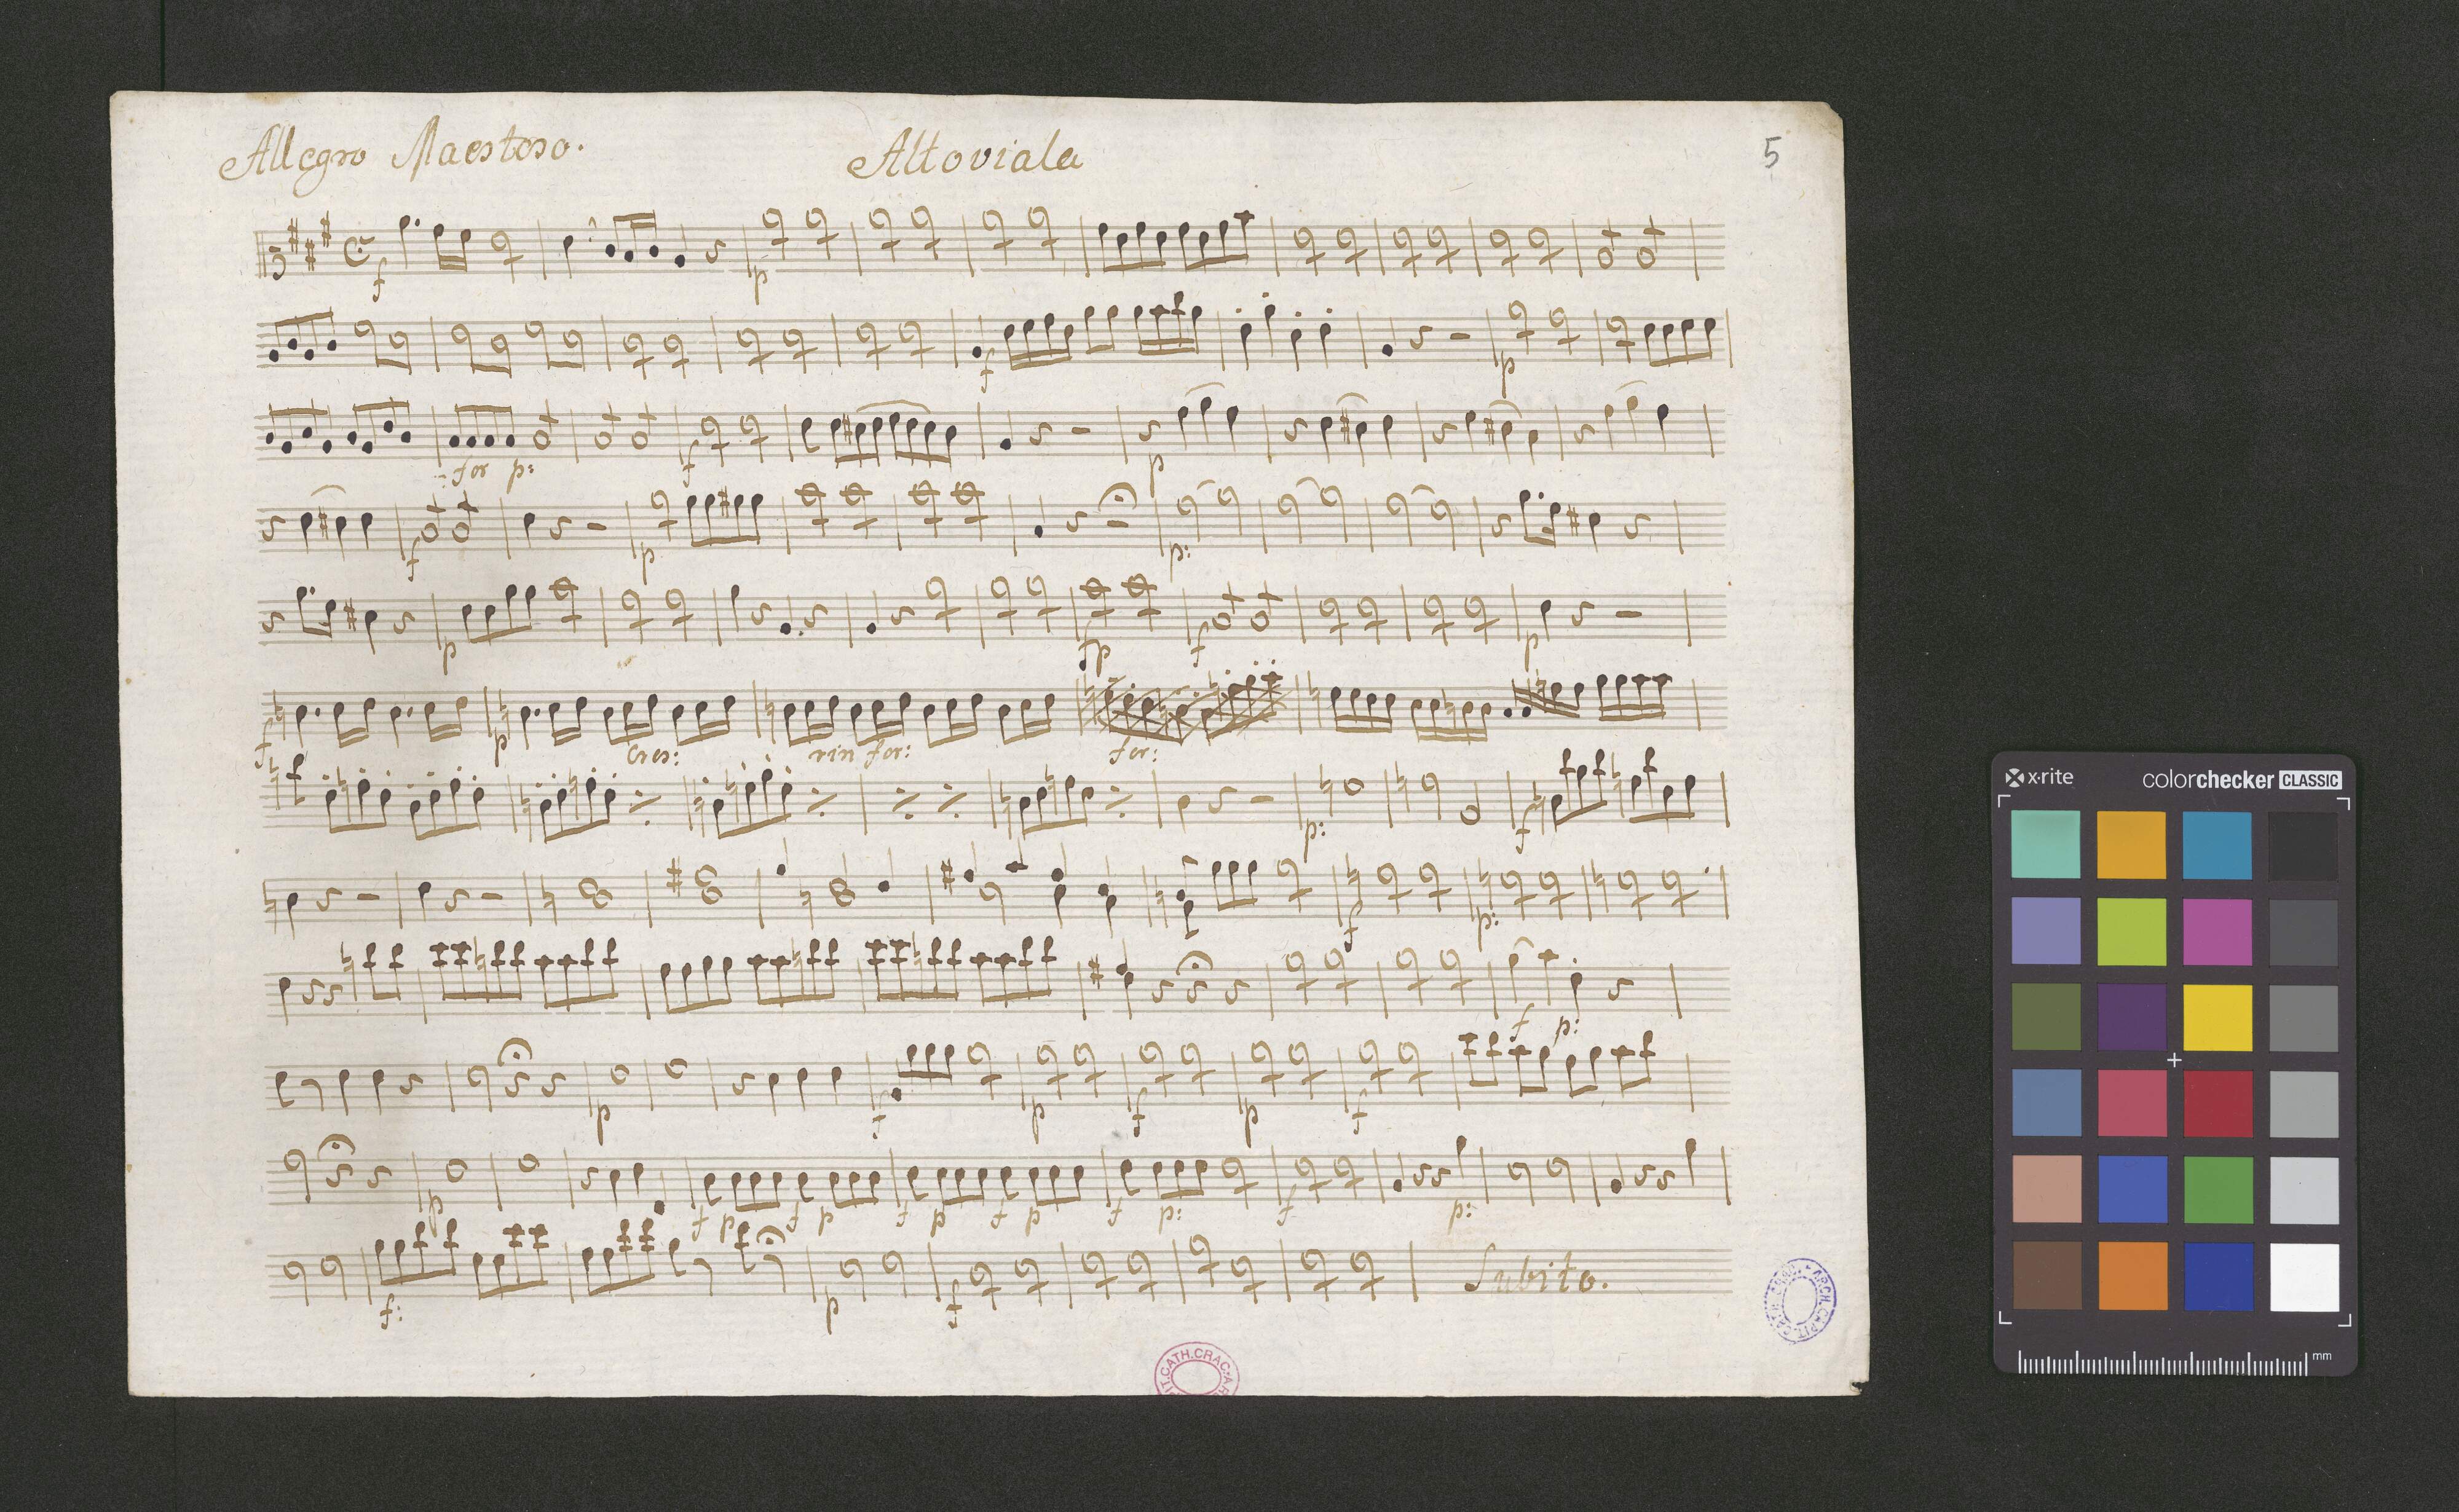 Allegro Maestoso. Altoviala 5
f p
f p
: for p: f p
f p p:
p fp f p
f p cres: rin for: for:
p: f
f p:
f p:
p f p f p f
p f p f p f p f p f p: f p:
f: p f Subito.
CATH.CRAC.
ARCH.CAPIT.CATH.
x·rite colorchecker CLASSIC
mm